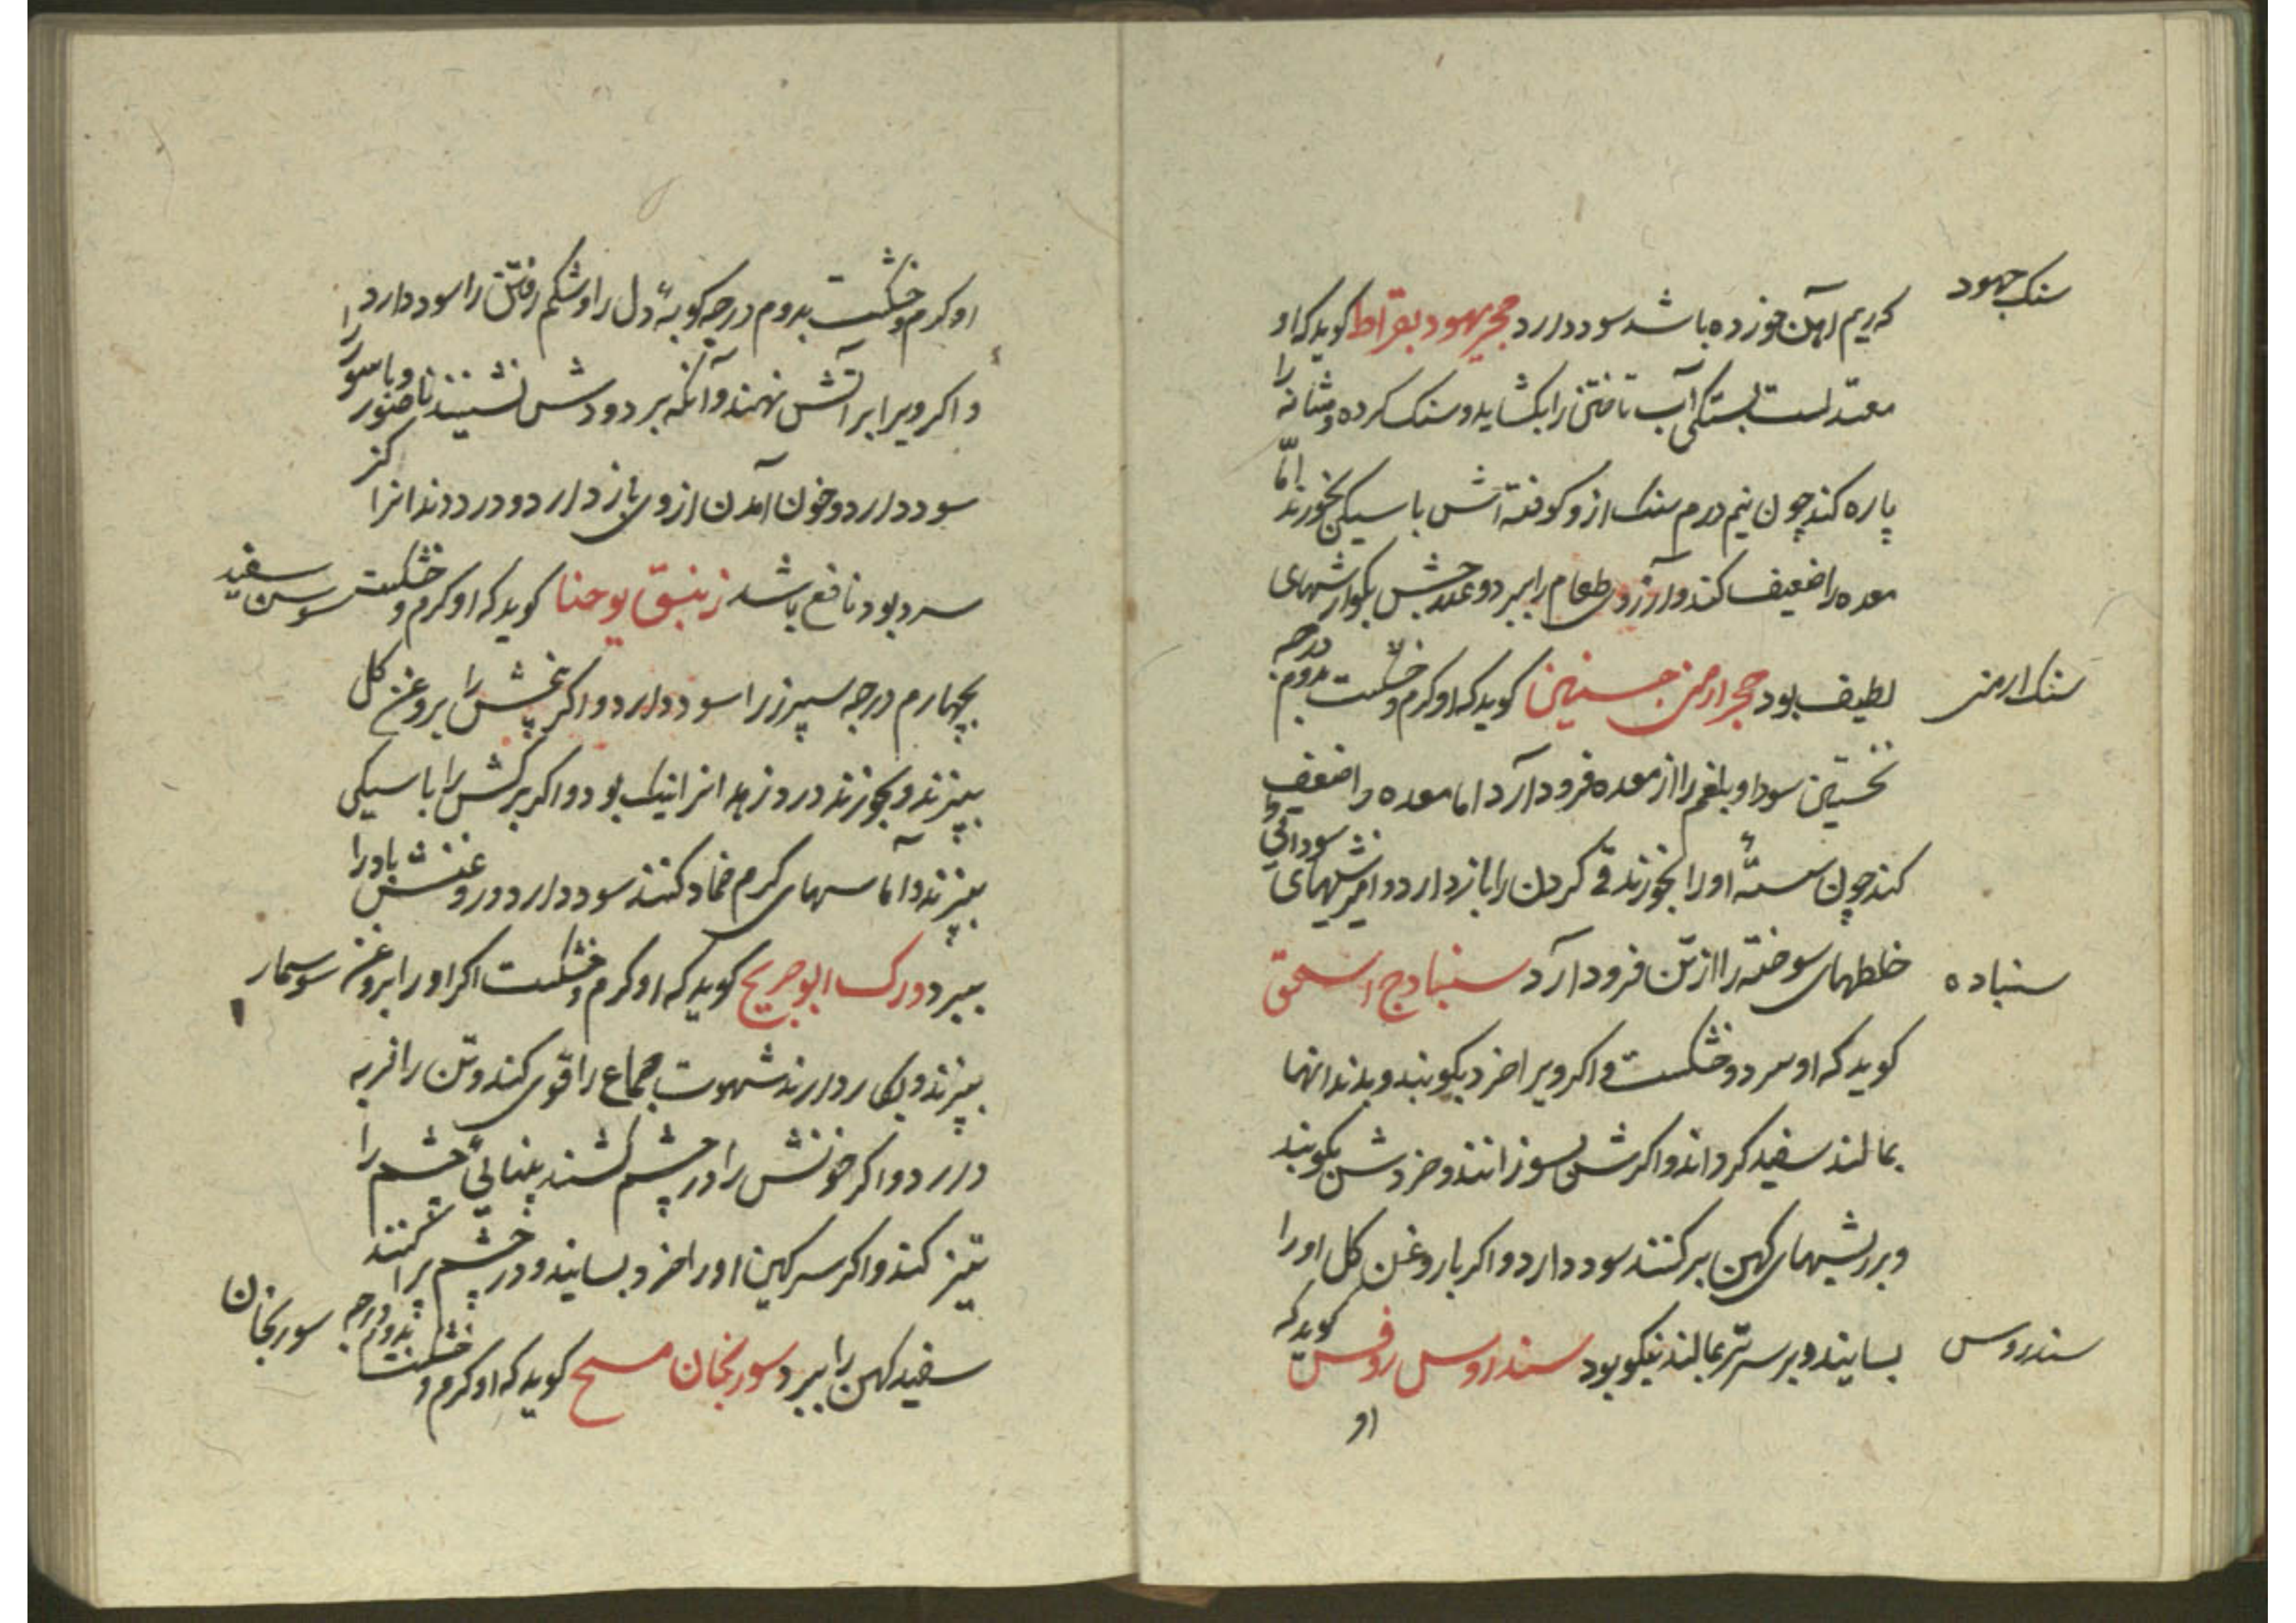 سنک جهود
که ریم آهن خورده باشد سود دارد حجر یهود بقراط کوید که او
معتدلست بستکی آب تاختن را بکشاید و سنک کرده و مثانه را
پاره کند چون نیم درم سنک ازو کوفته آتش با سیکی بخورند امّا
معده را ضعیف کند و آرزوی طعام را ببرد و علاجش بکوارشهای
سنک ارمنی
لطیف بود حجر ارمنی جسنین کوید که او کرم و خشکست بدوم درجه
نخستین سودا و بلغم را از معده فرود آرد اما معده را ضعیف
کند چون شستهٔ او را بخورند قی کردن را باز دارد و سودائی و
خلطهای سوخته را از تن فرود آرد سنبادج اسحق
سنباده
کوید که او سرد و خشکست و اکر ویرا خرد بکوبند و بدندانها
بمالند سفید کرداند و اکرش بسوزانند و خردش بکوبند
و بر ریشهای کهن برکنند سود دارد و اکر با روغن کل او را
بسایند و بر سر تر بمالند نیکو بود سندروس روفس کوید که
سندروس
او
او کرم و خشکست بدوم درجه کوبهٔ دل را و شکم رفتن را سود دارد
و اکر ویرا بر آتش نهند و آنکه بر دودش نشیند ناصور و باسور را
سود دارد و خون آمدن از وی باز دارد و درد دندانرا کز
سرد بود نافع باشد زنبق یوحنا کوید که او کرم و خشکست
سوسن سفید
بچهارم درجه سپرز را سود دارد و اکر بیخش را بروغن کل
بپزند و بخورند درد زهدانرا نیک بود و اکر برکش را با سیکی
بپزند و آماسهای کرم ضماد کنند سود دارد و روغنش باد را
ببرد ورک ابو جریح کوید که او کرم و خشکست اکر او را بروغن
سوسمار
بپزند و بکار دارند شهوت جماع را قوی کند و تن را فربه
دارد و اکر خونش را در چشم کشند بینائی چشم را
تیز کند و اکر سرکین او را خرد بسایند و در چشم پراکنند
سفید کهن را ببرد سورنجان مسیح کوید که او کرم و خشکست بدوم درجه
سورنجان